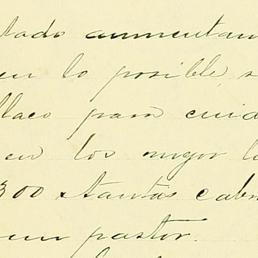 tado aumentan
en lo posible, s
llaco para cuid
en los mejor l
300 tantas cab
un pastor.